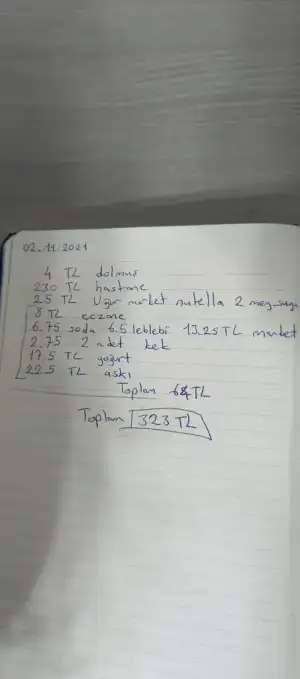 02.11.2021
4 TL dolmuş
230 TL hastane
25 TL Uğur market nutella 2 mey.suyu
8 TL eczane
6.75 soda 6.5 leblebi 13.25 TL market
2.75 2 adet kek
17.5 TL yoğurt
22.5 TL askı
Toplam 64 TL
Toplam 323 TL